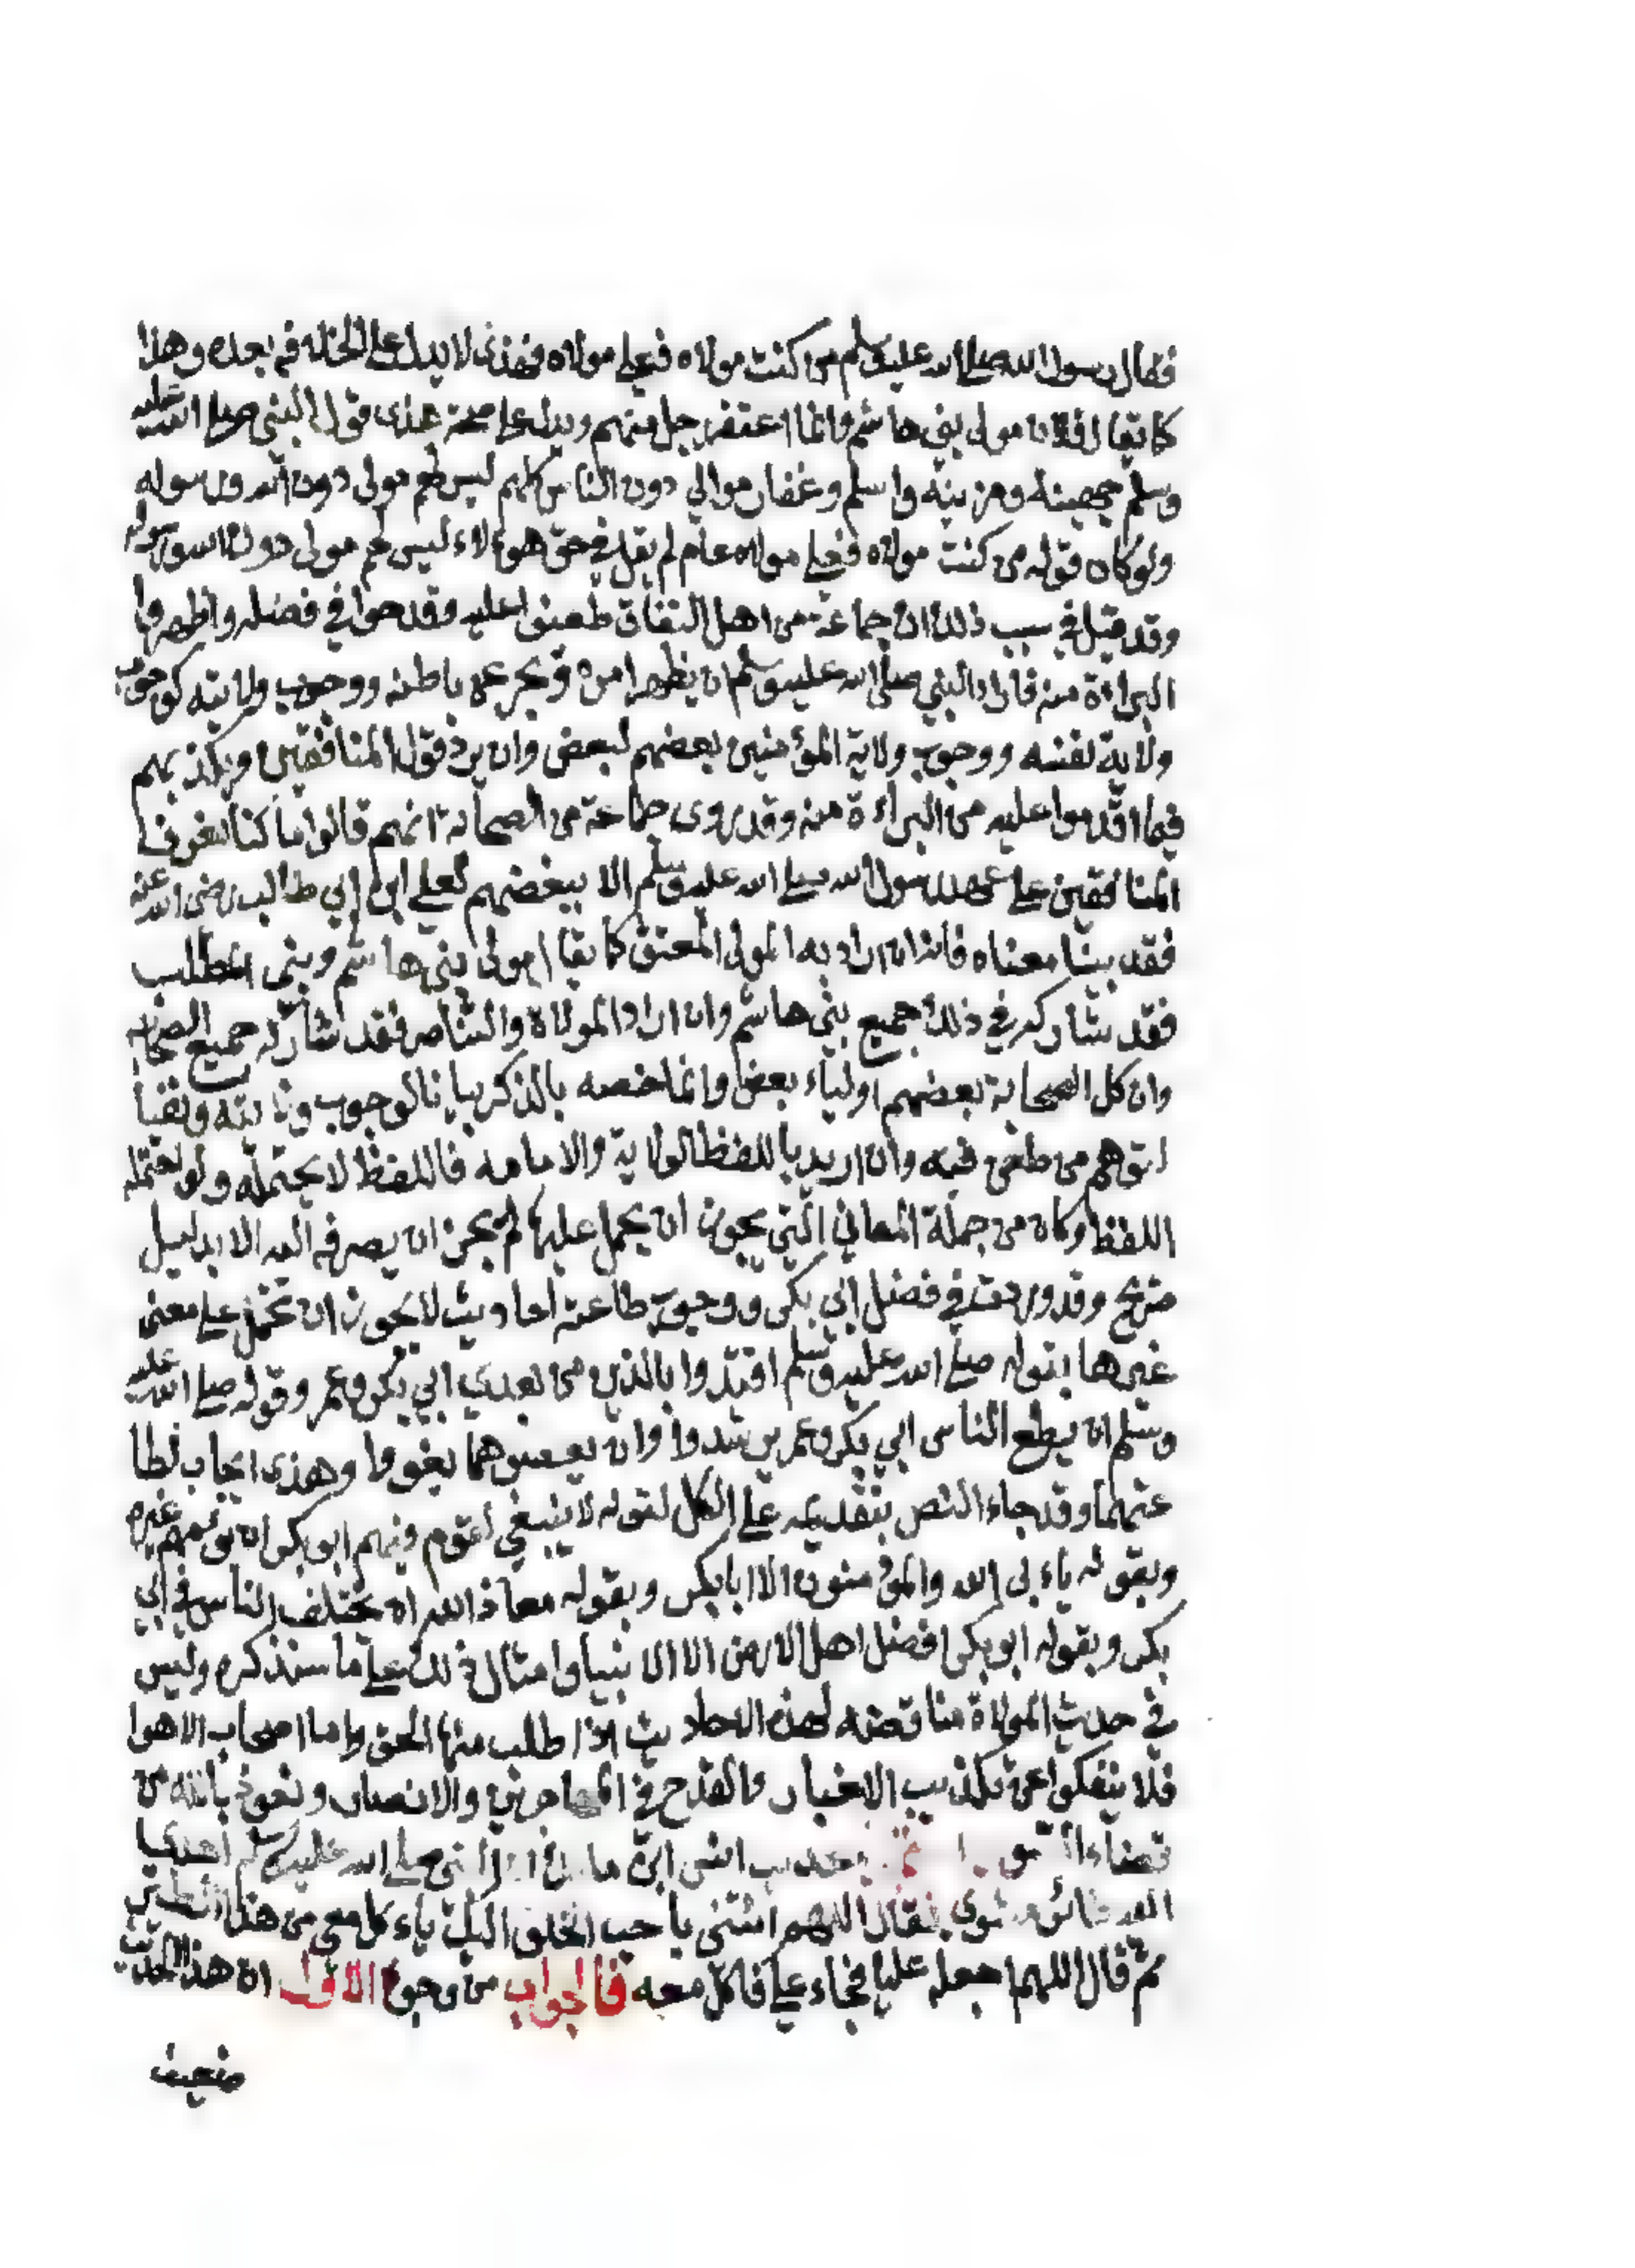 فقال رسول الله صلى الله عليه وسلم من كنت مولاه فعلي مولاه فهذى لا يدل على الخلافه من بعده وهذا
كما يقال فلان مولى بني هاشم وانما اعتقه رجل منهم ويدل على صحة هذى قول النبي صلى الله عليه
وسلم جهينة ومزينه واسلم وغفار موالي دون الناس كلهم ليس لهم مولى دون الله ورسوله
ولو كان قوله من كنت مولاه فعلي مولاه عام لم يقل في حق هولاء ليس لهم مولى دون الله ورسوله
وقد قيل في سبب ذلك ان جماعة من اهل النفاق طعنوا عليه وقدحوا في فضله واظهروا
البراءة منه فاراد النبي صلى الله عليه وسلم ان يظهر امره ويخبر عن باطنه ووجوب ولايته كوجوب
ولاية نفسه ووجوب ولاية المؤمنين بعضهم لبعض وان يرد قول المنافقين ويكذبهم
فيما اقدموا عليه من البراءة منه وقد روى جماعة من الصحابة انهم قالوا ما كنا نعرف
المنافقين على عهد رسول الله صلى الله عليه وسلم الا ببغضهم لعلي ابن ابي طالب رضى الله عنه
فقد بينا معناه فانه ان اراد به المولى المعتق كما يقال مولى بني هاشم وبني المطلب
فقد شاركه في ذلك جميع بني هاشم وان اراد المولاة والتناصر فقد شاركه جميع الصحابه
وان كل الصحابة بعضهم اولياء بعض وانما خصه بالذكر بيانا لوجوب ولايته ونفيا
لتوهم من طعن فيه وان اريد باللفظ الولاية والامامه فاللفظ لا يحتمله ولو احتمله
اللفظ وكان من جملة المعاني التي يجوز ان يحمل عليها لم يجز ان يصرف اليه الا بدليل
صريح وقد وردت في فضل ابي بكر ووجوب طاعته احاديث لا يجوز ان تحمل على معنى
غيرها بقوله صلى الله عليه وسلم اقتدوا بالذين من بعدي ابي بكر وعمر وقوله صلى الله عليه
وسلم ان يطع الناس ابي بكر وعمر يرشدوا وان يعصوهما يغووا وهذى ايجاب لطا
عتهما وقد جاء النص بتقديمه على الكل لقوله لا ينبغي لقوم فيهم ابو بكر ان يؤمهم غيره
وبقوله ياءبى الله والمؤمنون الا ابا بكر وبقوله معاذ الله ان يختلف الناس في ابي
بكر وبقوله ابو بكر افضل اهل الارض الا الانبيا وامثال ذلك على ما سنذكره وليس
في حديث المولاة مناقضه لهذه الاحاديث اذا طلب منها الحق واما اصحاب الاهوا
فلا ينفكوا عن تكذيب الاخبار والقدح في المهاجرين والانصار ونعوذ بالله من
قضاء السو بحديث انس ابن مالك ان النبي صلى الله عليه وسلم اهدي
اليه طائر مشوي فقال اللهم ائتني باحب الخلق اليك ياءكل معي من هذا الطير
ثم قال اللهم اجعله عليا فجاء علي فاكل معه فالجواب من وجوه الاول ان هذا الحديث
ضعيف